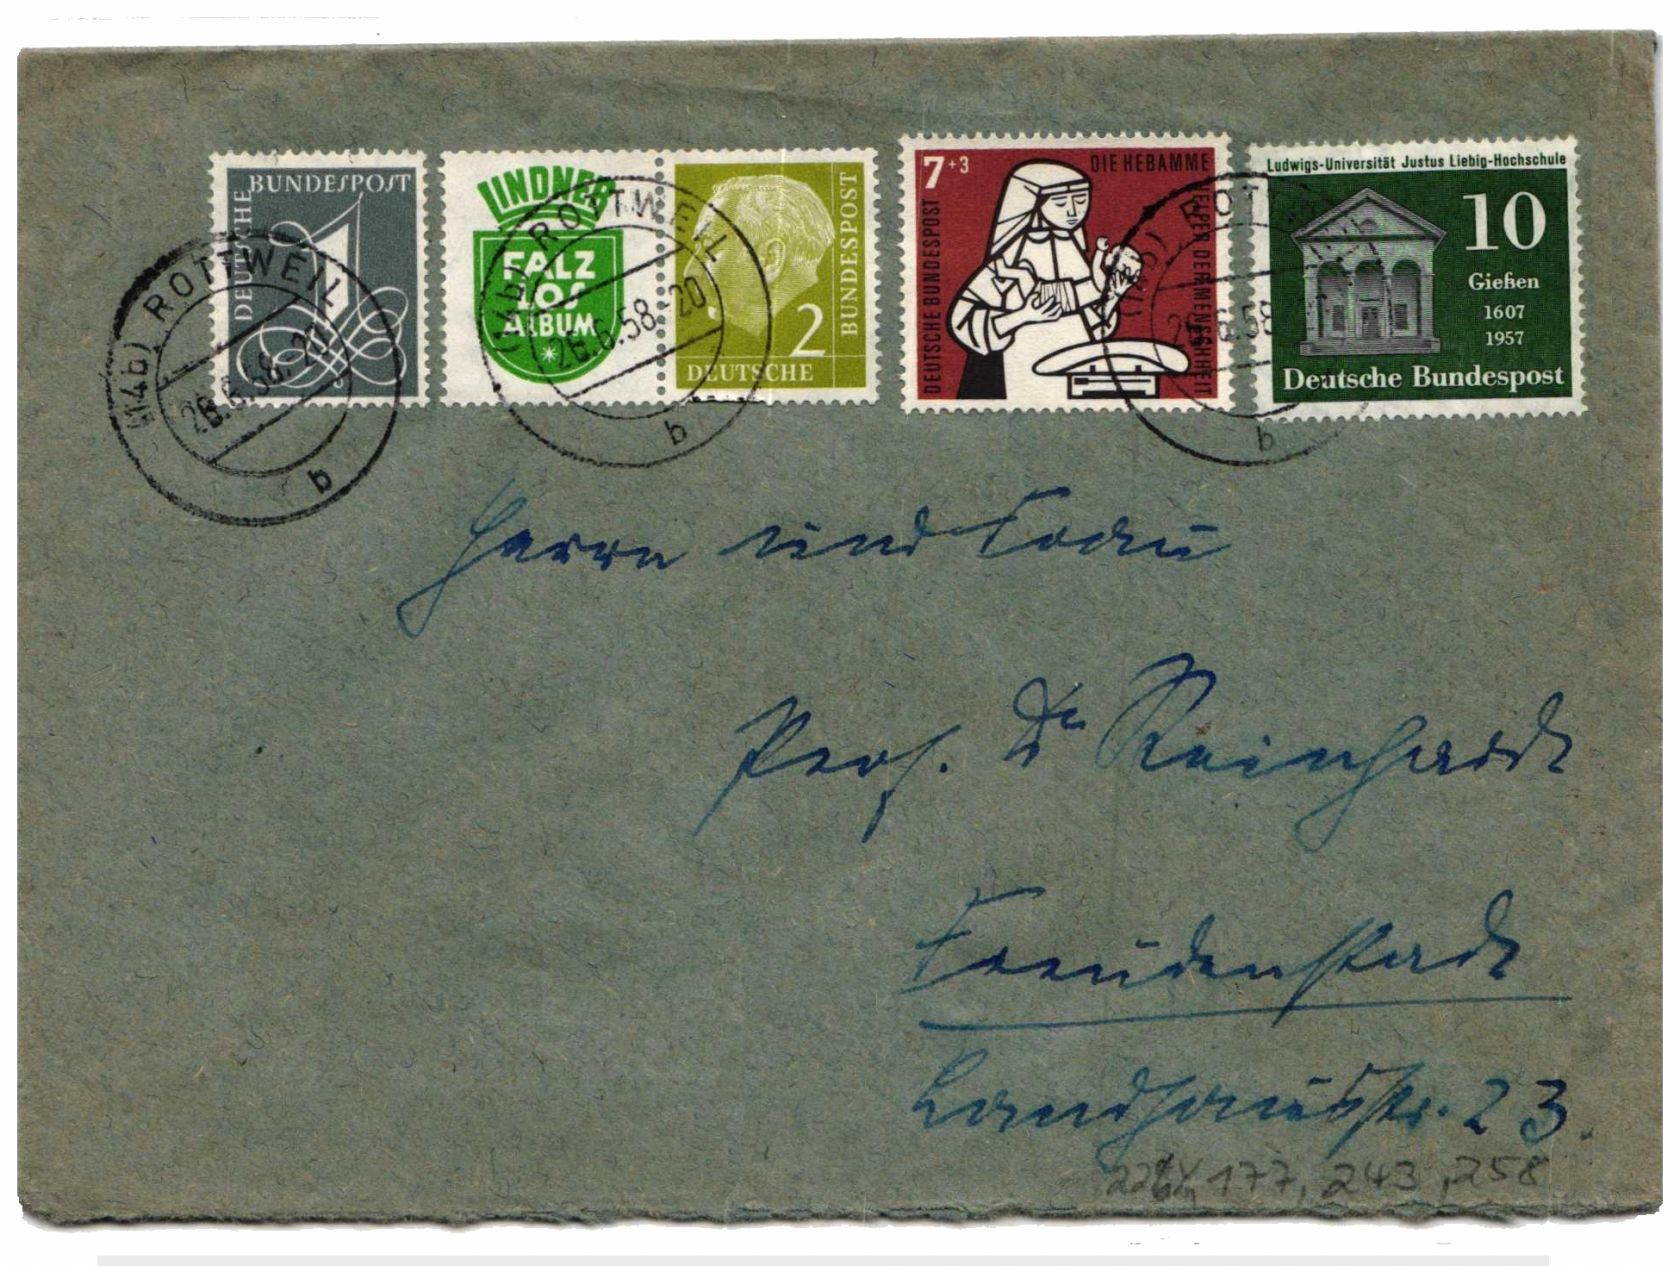 DEUTSCHE BUNDESPOST
1
LINDNER
FALZ
LOS
ALBUM
2
DEUTSCHE BUNDESPOST
7+3
DIE HEBAMME
HELFER DER MENSCHHEIT
DEUTSCHE BUNDESPOST
Ludwigs-Universität Justus Liebig-Hochschule
10
Gießen
1607
1957
Deutsche Bundespost
(14b) ROTTWEIL
26.6.58.-20
b
(14b) ROTTWEIL
26.6.58.-20
b
26.6.58
b
Herrn und Frau
Prof. Dr Reinhardt
Freudenstadt
Landhausstr. 23.
177, 243, 258